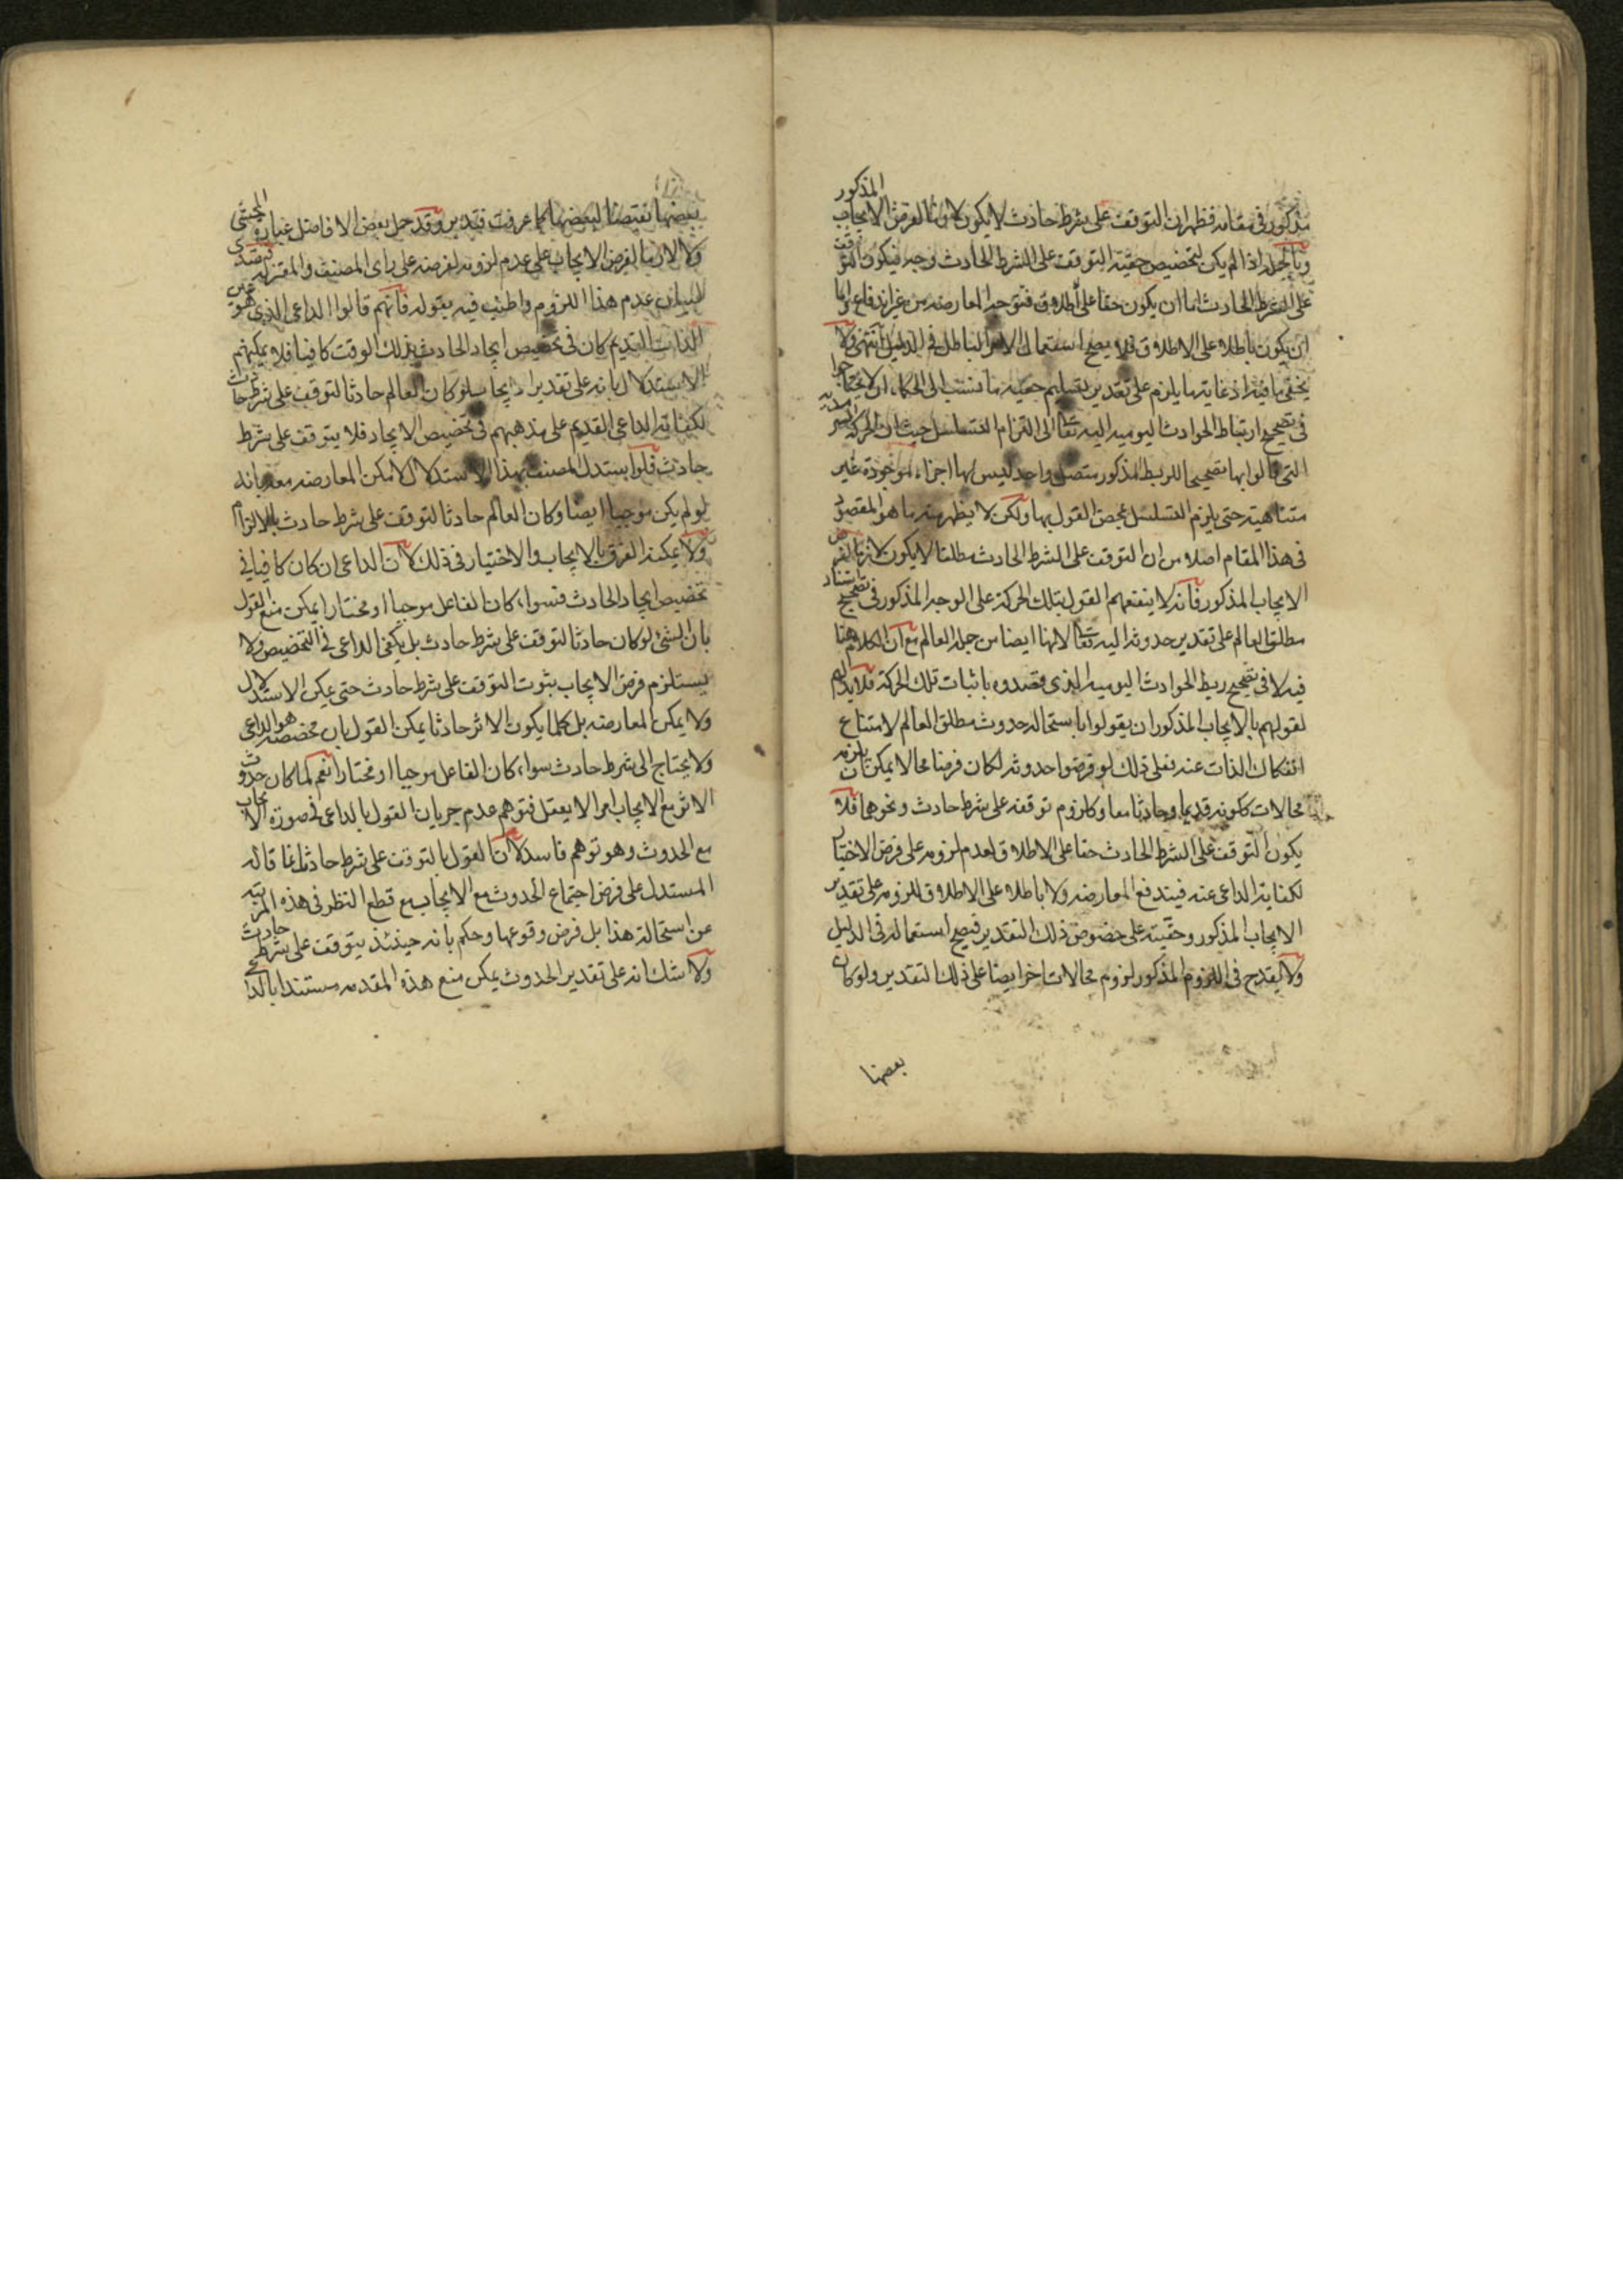 المذكور
مذكور في مقامه فظهر ان التوقف على شرط حادث لا يكون لازما لفرض الايجاب
وبالجملة اذا لم يكن لتخصيص حقية التوقف على الشرط الحادث وجه فيكون التوقف
على الشرط الحادث اما ان يكون حقا على اطلاقه فتوجه المعارضة من غير اندفاع واما
ان يكون باطلا على الاطلاق فلا يصح استعمال الامر الباطل في الدليل انتهى ولا
يخفى ما فيه اذ غاية ما يلزم على تقدير تسليم حقية ما نسب الى الحكماء ان لا يحتاجوا
في تصحيح ارتباط الحوادث اليومية اليه تعالى الى التزام التسلسل حيث ان الحركة
التي قالوا بها تصحيحا للربط المذكور متصل واحد ليس لها اجزاء موجودة غير
متناهية حتى يلزم التسلسل بمحض القول بها ولكن لا يظهر منه ما هو المقصود
في هذا المقام اصلا من ان التوقف على الشرط الحادث مطلقا لا يكون لازما لفرض
الايجاب المذكور فانه لا ينفعهم القول بتلك الحركة على الوجه المذكور في تصحيح استناد
مطلق العالم على تقدير حدوثه اليه تعالى لانها ايضا من جملة العالم مع ان الكلام هنا
فيه لا في تصحيح ربط الحوادث اليومية الذي قصدوه باثبات تلك الحركة فلا بد لهم
لقولهم بالايجاب المذكور ان يقولوا باستحالة حدوث مطلق العالم لامتناع
انفكاك الذات عنه فعلى ذلك لو فرضوا حدوثه لكان فرضا محالا يمكن ان يلزمه
محالات ككونه قديما وحادثا معا وكلزوم توقفه على شرط حادث ونحوهما فلا
يكون التوقف على الشرط الحادث حقا على الاطلاق لعدم لزومه على فرض الاختيار
لكفاية الداعي عنه فيندفع المعارضة ولا باطلا على الاطلاق للزومه على تقدير
الايجاب المذكور وحقيته على خصوص ذلك التقدير فيصح استعماله في الدليل
ولا يقدح في اللزوم المذكور لزوم محالات اخر ايضا على ذلك التقدير ولو كان
بعضها
بعضها نقيضا لبعضها كما عرفت فتدبر وقد حمل بعض الافاضل عبارة المحشي
لازما لفرض الايجاب على عدم لزومه لفرضه على راى المصنف والمعتزلة فتصدى
لبيان عدم هذا اللزوم واطنب فيه بقوله فانهم قالوا الداعي الذي هو عين
الذات القديم كان في تخصيص ايجاد الحادث بذلك الوقت كافيا فلا يمكنهم
الاستدلال بانه على تقدير الايجاب لو كان العالم حادثا لتوقف على شرط حادث
لكفاية الداعي القديم على مذهبهم في تخصيص الايجاد فلا يتوقف على شرط
حادث فلو استدل المصنف بهذا الاستدلال لامكن المعارضة معه بانه
لو لم يكن موجبا ايضا وكان العالم حادثا لتوقف على شرط حادث
ولا يمكنه الفرق بالايجاب والاختيار في ذلك لان الداعي ان كان كافيا في
تخصيص ايجاد الحادث فسواء كان الفاعل موجبا او مختارا يمكن منع القول
بان الشئ لو كان حادثا لتوقف على شرط حادث بل يكفي الداعي في التخصيص ولا
يستلزم فرض الايجاب ثبوت التوقف على شرط حادث حتى يمكن الاستدلال
ولا يمكن المعارضة بل كلما يكون الاثر حادثا يمكن القول بان مخصصه هو الداعي
ولا يحتاج الى شرط حادث سواء كان الفاعل موجبا او مختارا نعم لما كان حدوث
الاثر مع الايجاب امرا لا يعقل فتوهم عدم جريان القول بالداعي في صورة الايجاب
مع الحدوث وهو توهم فاسد لان القول بالتوقف على شرط حادث انما قاله
المستدل على فرض اجتماع الحدوث مع الايجاب مع قطع النظر في هذه المرتبة
عن استحالة هذا بل فرض وقوعها وحكم بانه حينئذ يتوقف على شرط حادث
ولا شك انه على تقدير الحدوث يمكن منع هذه المقدمة مستندا